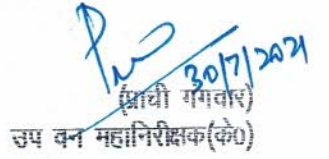 30/7/2021
(प्राची गंगवार)
उप वन महानिरीक्षक(के०)